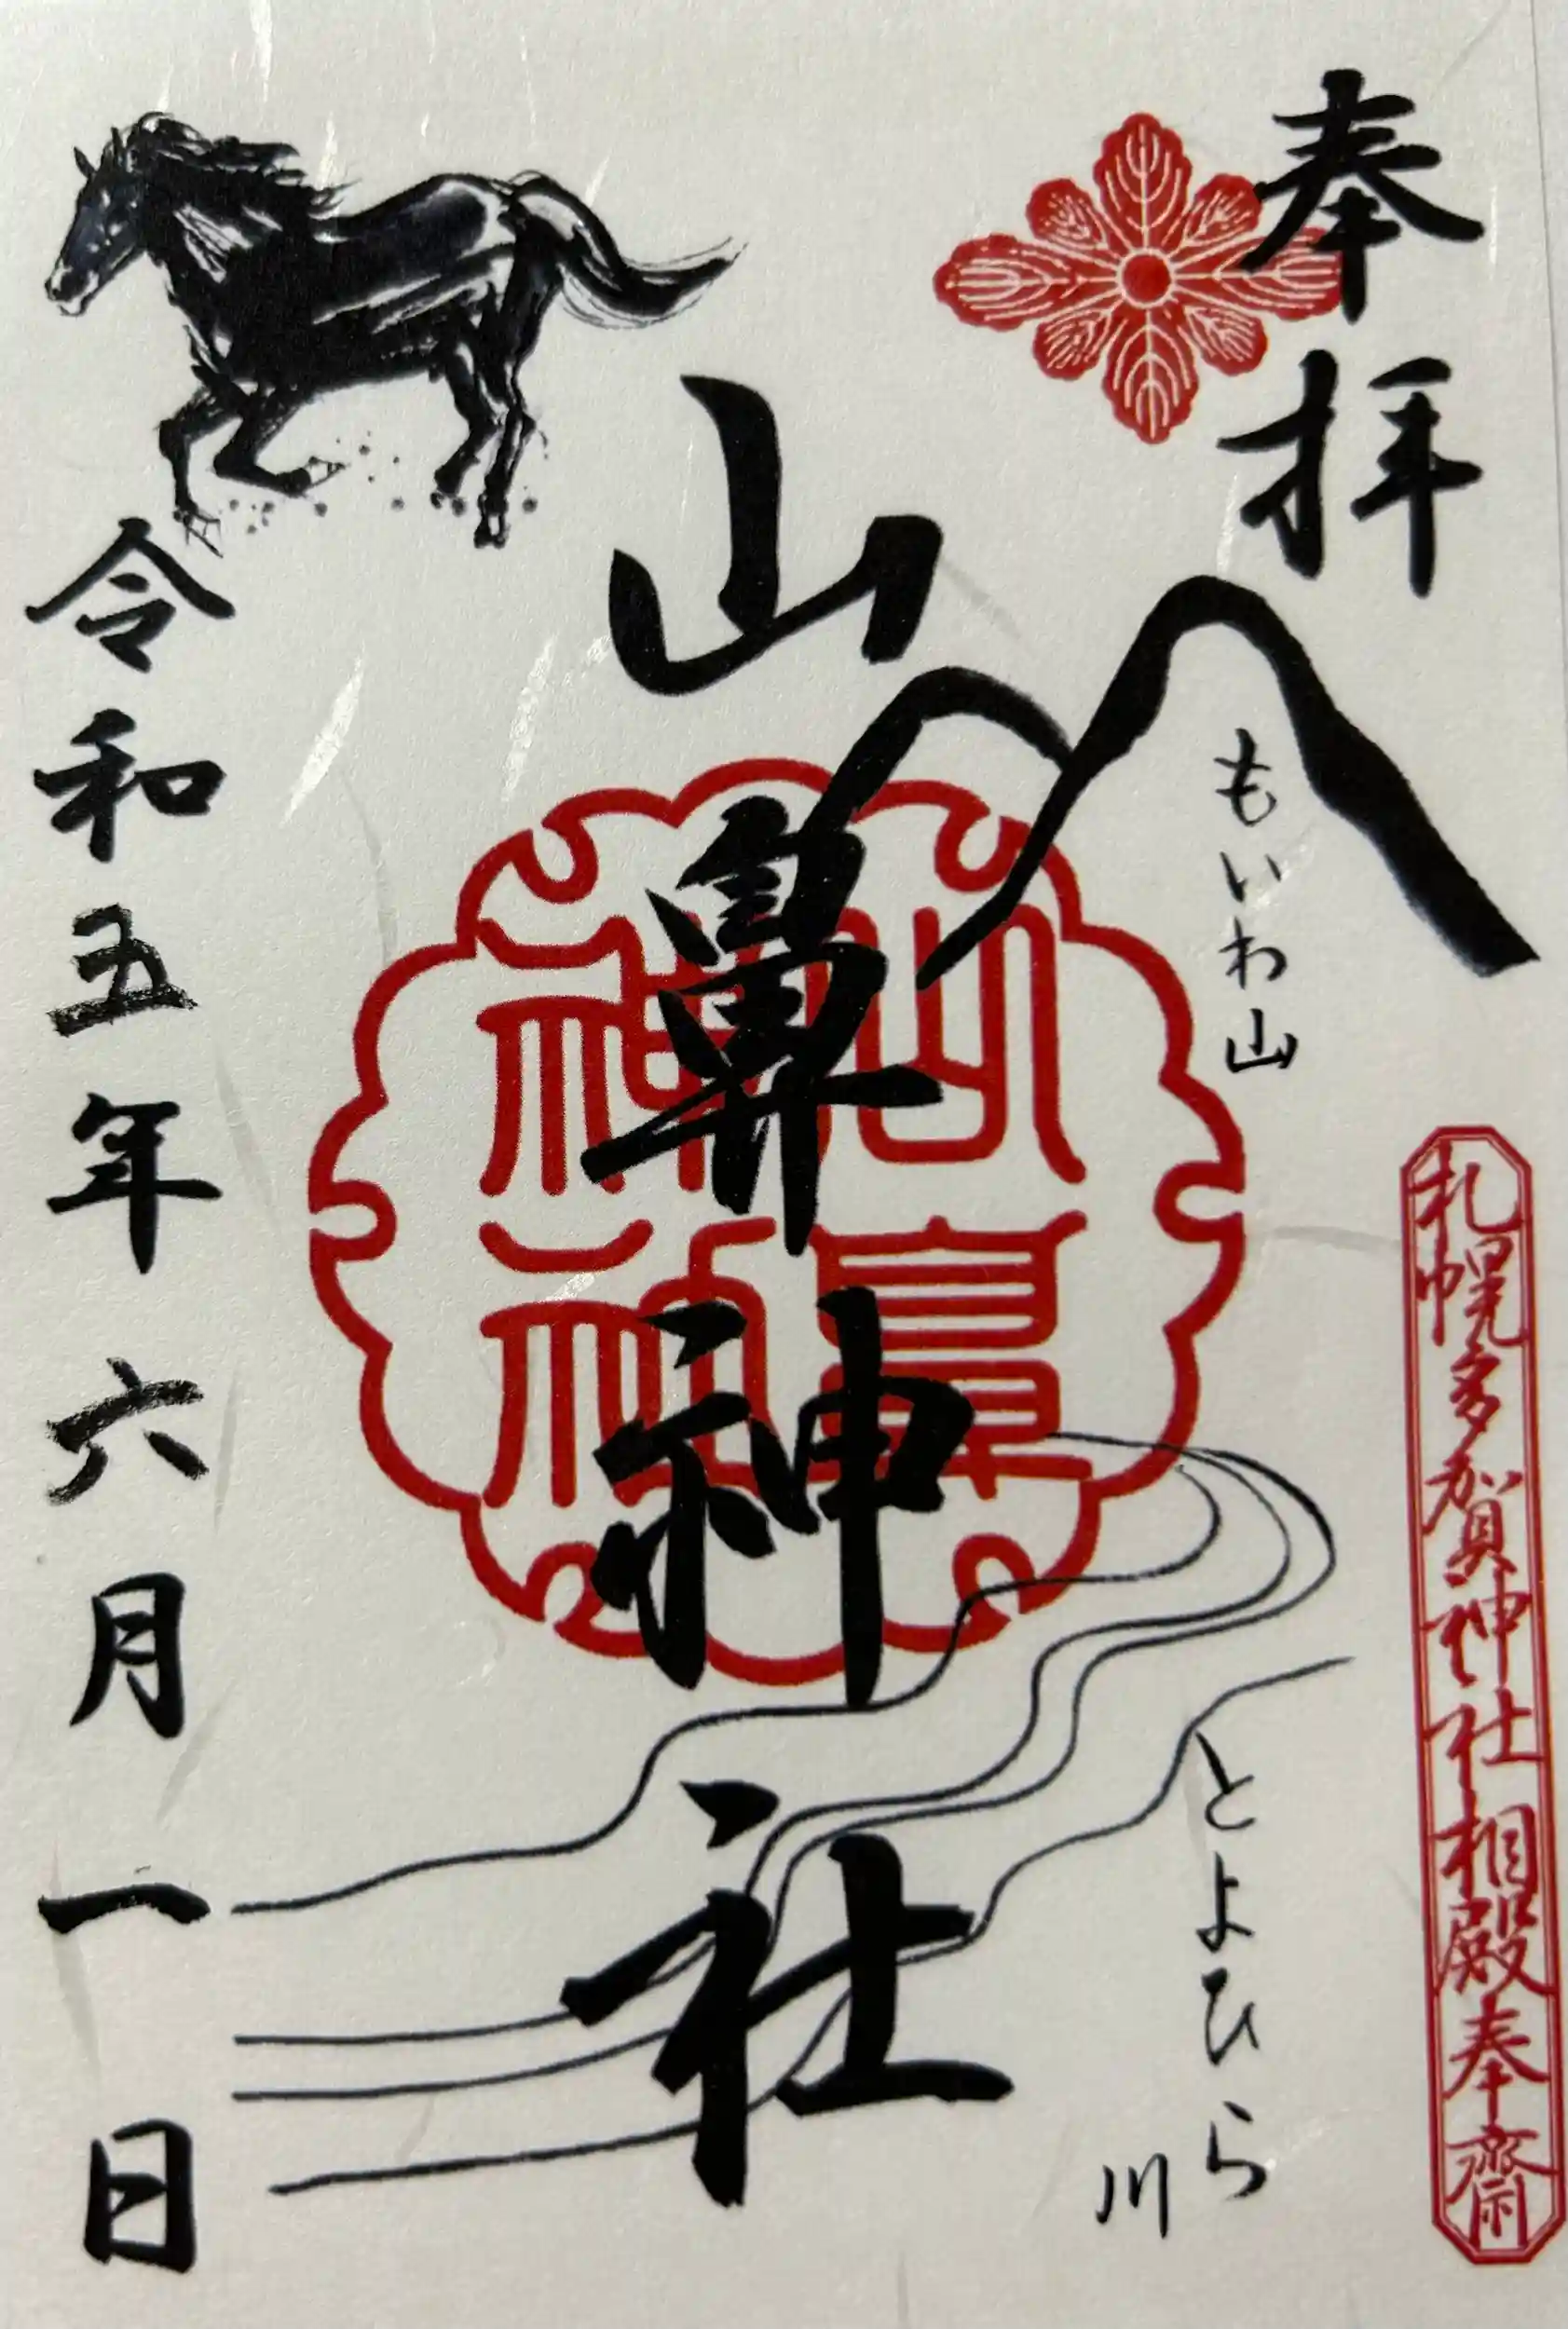 奉拝
もいわ山
札幌多賀神社相殿奉斎
山鼻神社
山鼻
神社
とよひら
川
令和五年六月一日